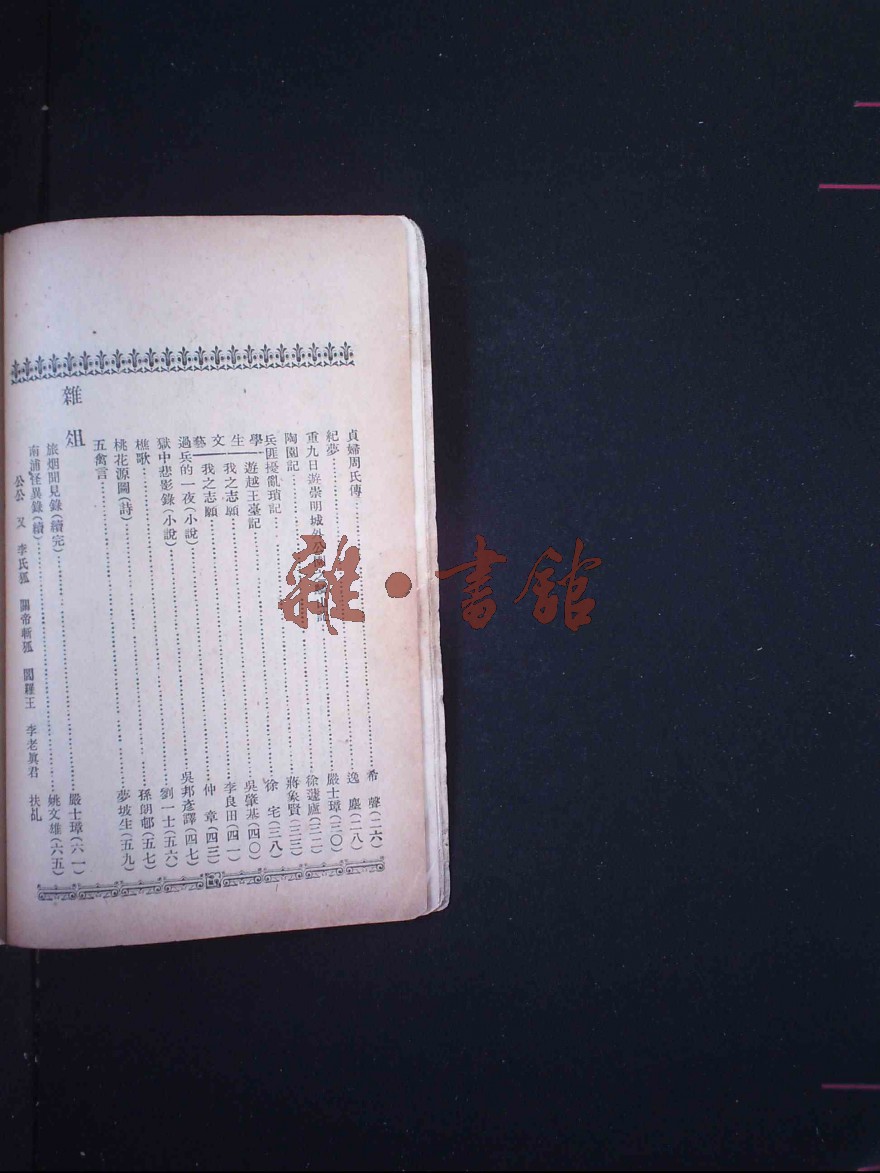 貞婦周氏傳……希聲(二六)
紀夢……逸塵(二八)
重九日游崇明城外公園記……嚴士璋(三〇)
陶園記……徐蘧廬(三二)
兵匪擾亂瑣記……蔣象賢(三三)
學生文藝
遊越王臺記……徐宅(三八)
我之志願……吳肇基(四〇)
我之志願……李良田(四一)
過兵的一夜(小說)……仲章(四三)
獄中悲影錄(小說)……吳邦彥譯(四七)
樵歌……劉一士(五六)
桃花源圖(詩)……孫朗邨(五七)
五禽言……夢坡生(五九)
雜俎
旅烟聞見錄(續完)……嚴士璋(六一)
南浦怪異錄(續)……姚文雄(六五)
公公 又 李氏狐 關帝斬狐 閻羅王 李老眞君 扶乩
雜·書館